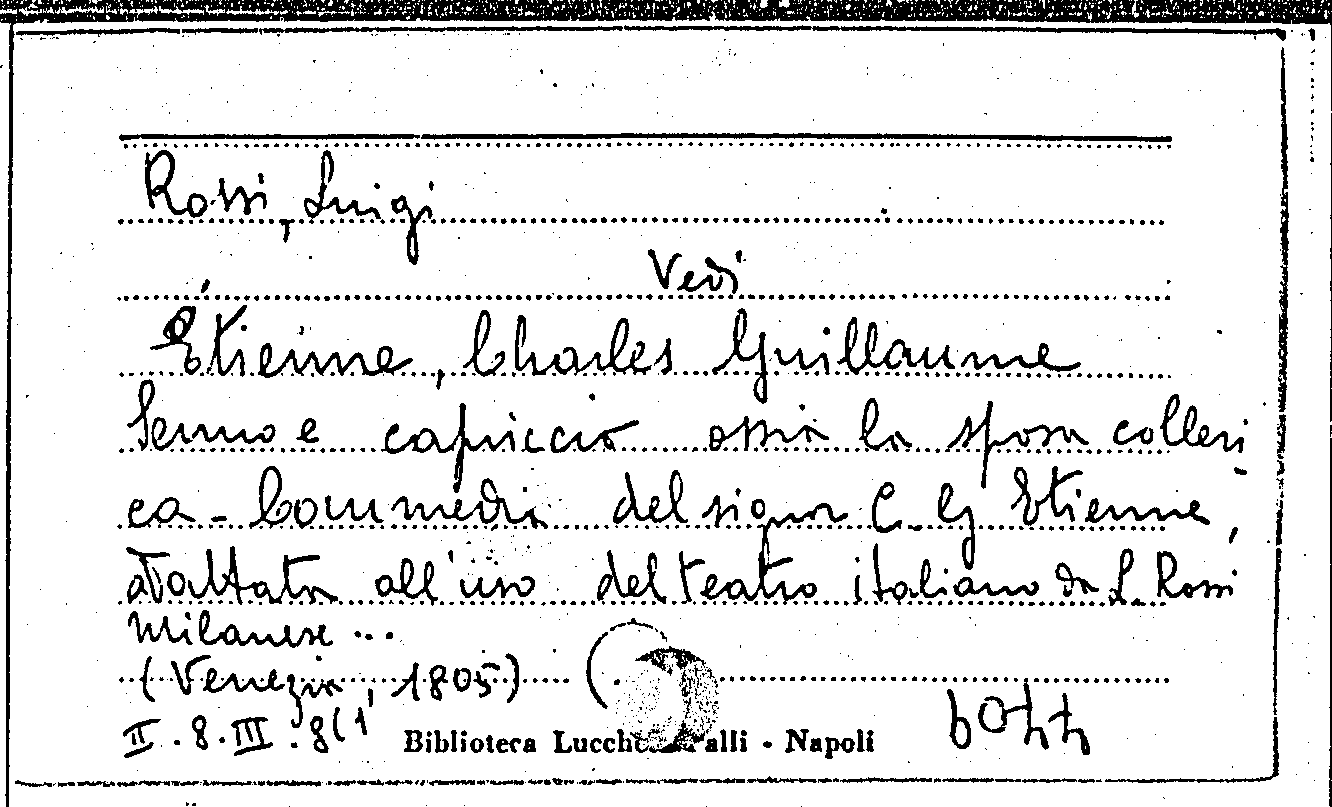 Rossi, Luigi
Vedi
Étienne, Charles Guillaume
Senno e capriccio ossia la sposa colleri
ca - Commedia del signor C. G. Etienne,
adattata all'uso del teatro italiano da L. Rossi
milanese ...
(Venezia, 1805)
II. 8. III. 8(1
Biblioteca Lucche alli - Napoli